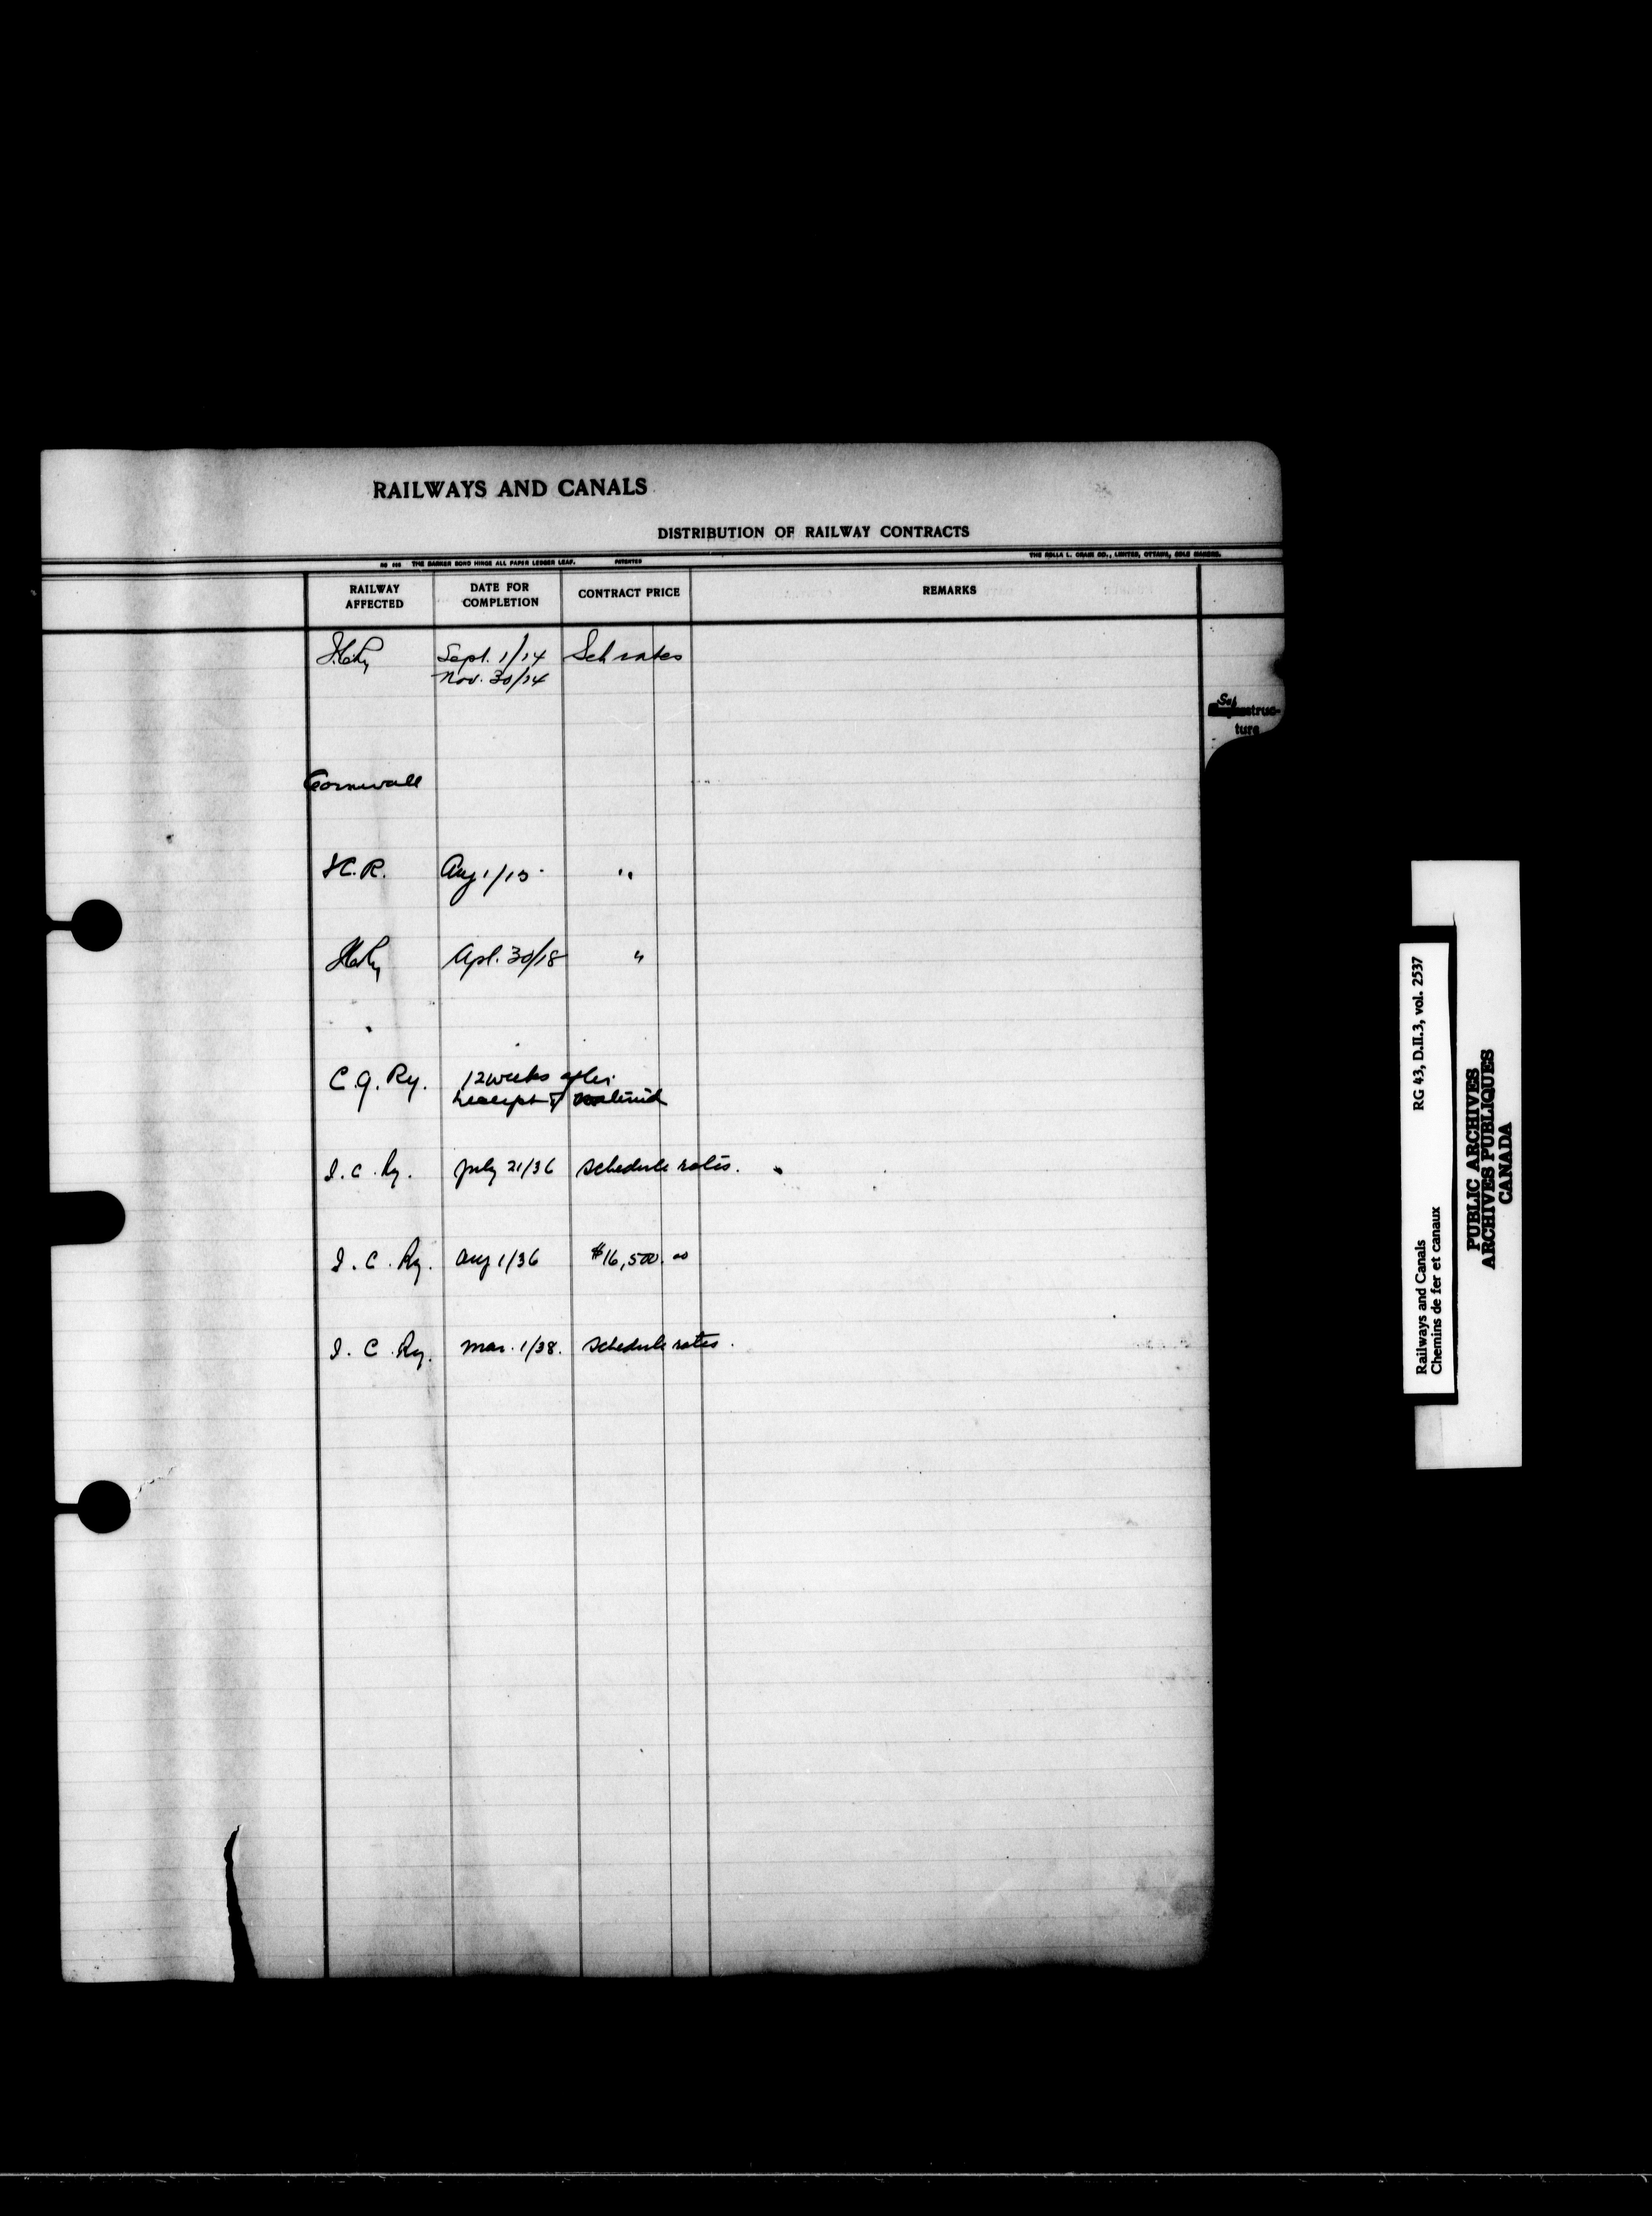 RAILWAYS AND CANALS
DISTRIBUTION OF RAILWAY CONTRACTS
THE BARKER BOND HINGE ALL PAPER LEDGER LEAF. PATENTED
RAILWAY AFFECTED
DATE FOR COMPLETION
CONTRACT PRICE
REMARKS
Sept. 1/14 Sch rates
Nov. 30/14
structure
Cornwall
Aug 1/15 "
Apl. 30/18 "
C.G. Ry. 12 weeks after
receipt of material
I.C. Ry. July 21/36 schedule rates.
I.C. Ry. Aug 1/36 $16,500.00
I.C. Ry. Mar. 1/38. schedule rates.
RG 43, D.II.3, vol. 2537
Railways and Canals
Chemins de fer et canaux
PUBLIC ARCHIVES
ARCHIVES PUBLIQUES
CANADA